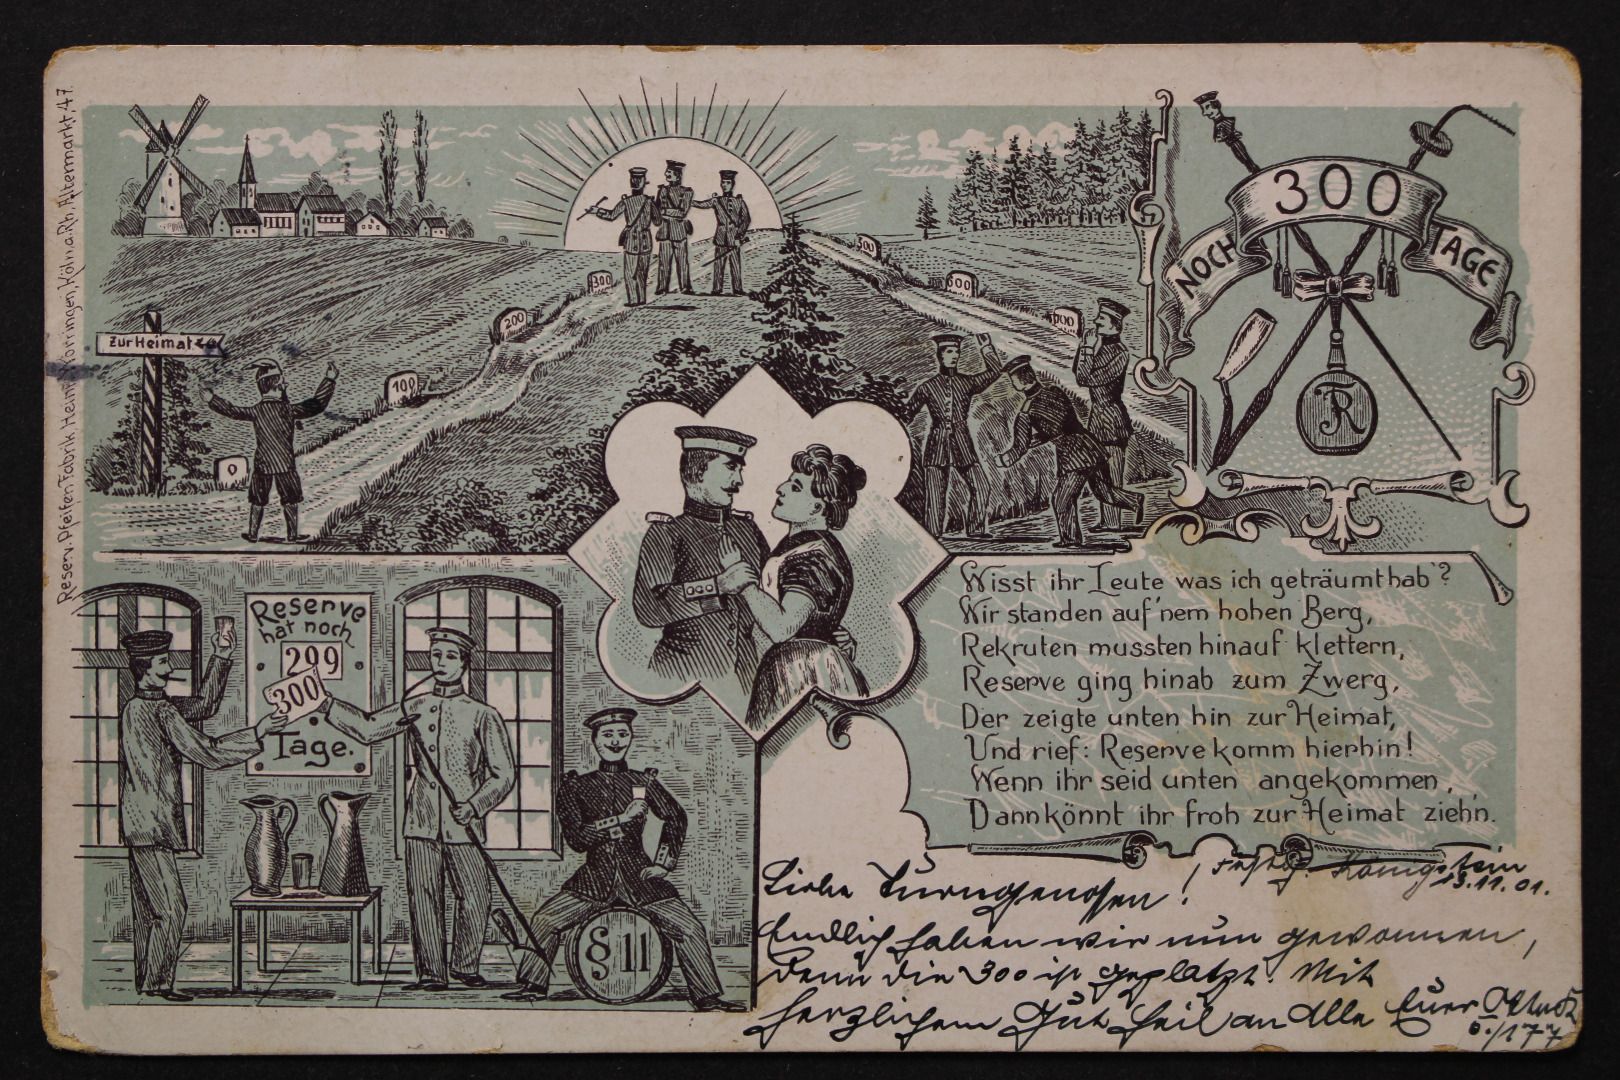 Reserv. Pfeifen Fabrik Heinr. Köln a. Rh. Altermarkt, 47.
Zur Heimat
0
100
200
300
300
600
NOCH 300 TAGE
R
Reserve
hat noch
299
300
Tage.
§ 11
Wisst ihr Leute was ich geträumt hab'?
Wir standen auf 'nem hohen Berg,
Rekruten mussten hinauf klettern,
Reserve ging hinab zum Zwerg,
Der zeigte unten hin zur Heimat,
Und rief: Reserve komm hierhin!
Wenn ihr seid unten angekommen,
Dann könnt ihr froh zur Heimat zieh'n.
Festg. Königstein
13.11.01.
Liebe Turngenossen!
Endlich haben wir nun gewonnen,
denn die 300 ist geplatzt. Mit
herzlichem Gut Heil an Alle Euer
/177